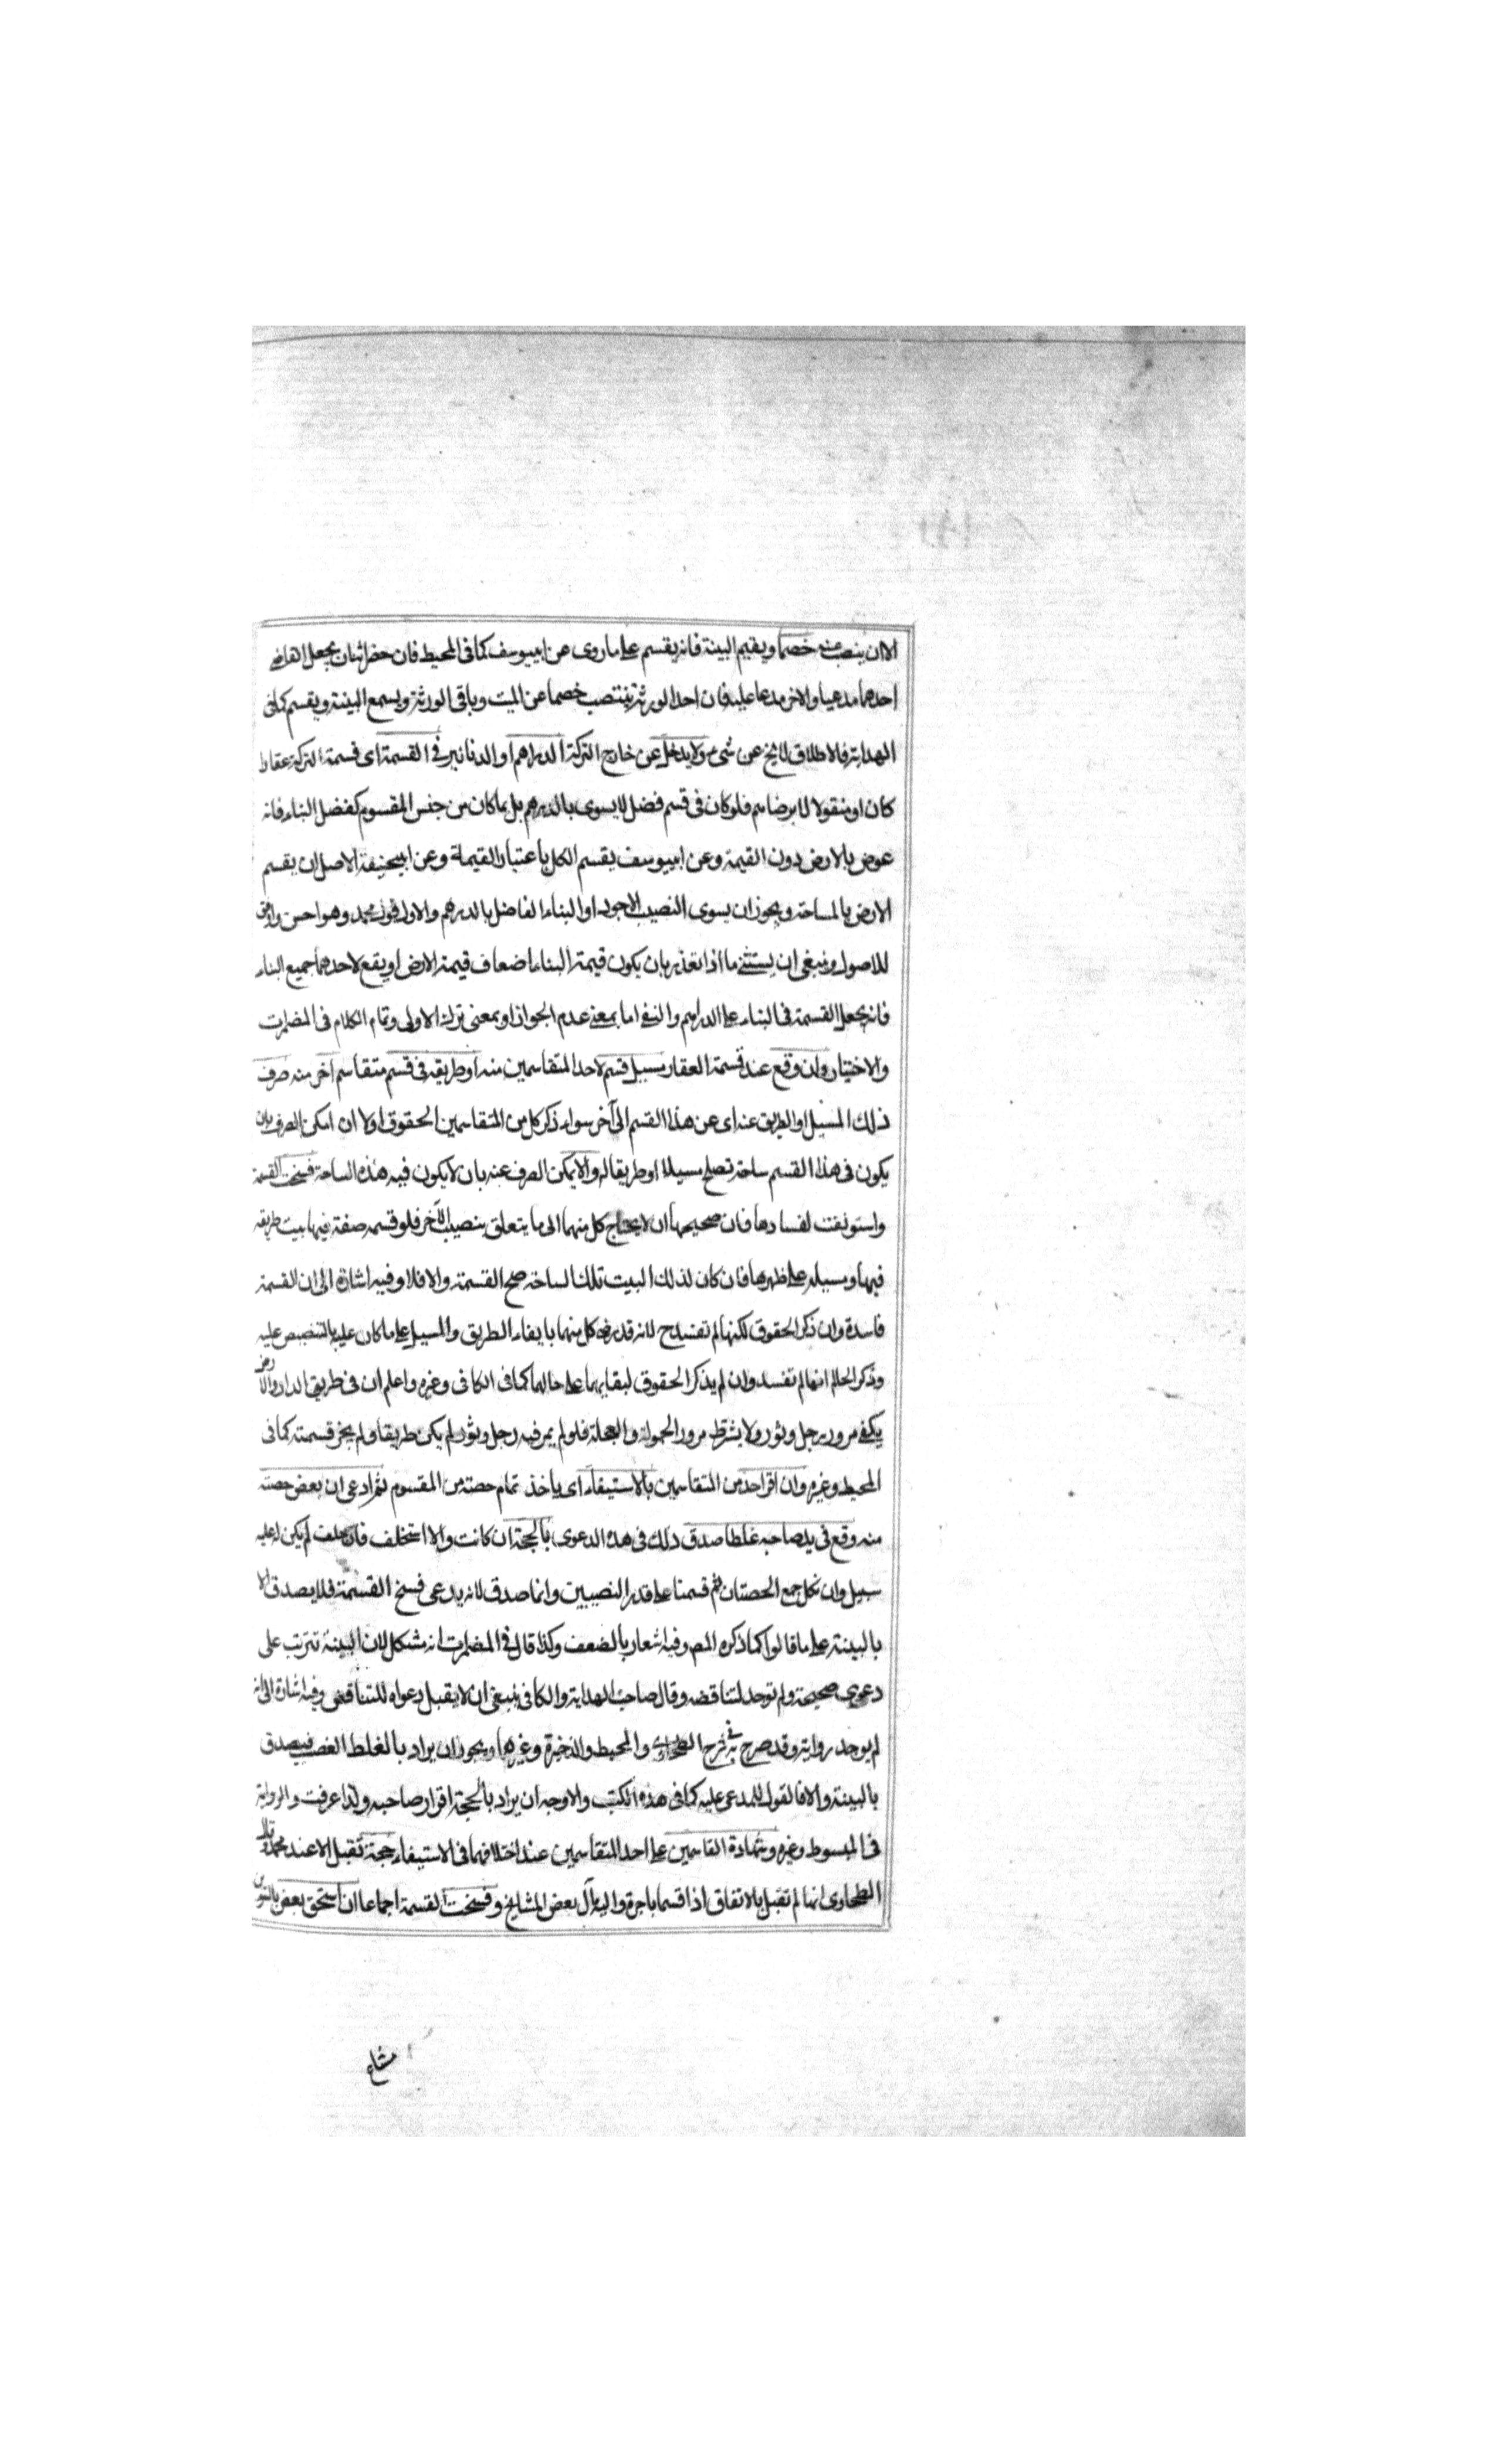 الا ان ينصب عنه خصما ويقيم البينة فانه يقسم على ما روى عن ابييوسف كما فى المحيط فان حضر اثنان يجعل القاضى
احدهما مدعيا والاخر مدعا عليه فان احد الورثة ينتصب خصما عن الميت وباقى الورثة ويسمع البينة ويقسم كما فى
الهداية فالاطلاق لا يخ عن شىء ولا يدخل عن خارج التركة الدراهم او الدنانير فى القسمة اى قسمة التركة عقارا
كان او منقولا الا برضاهم فلو كان فى قسم فضل لا يسوى بالدرهم بل بما كان من جنس المقسوم كفضل البناء فانه
عوض بالارض دون القيمة وعن ابييوسف يقسم الكل باعتبار القيمة وعن ابيحنيفة الاصل ان يقسم
الارض بالمساحة ويجوز ان يسوى النصيب الاجود او البناء الفاضل بالدرهم والاول قول محمد وهو احسن واوفق
للاصول وينبغى ان يستثنى ما اذا تعذر بان يكون قيمة البناء اضعاف قيمة الارض او يقع لاحدهما جميع البناء
فانه يجعل القسمة فى البناء على الدراهم والنفى اما بمعنى عدم الجواز او بمعنى ترك الاولى وتمام الكلام فى المضمرات
والاختيار وان وقع عند قسمة العقار مسيل قسم لاحد المتقاسمين منه او طريقه فى قسم متقاسم آخر منه صرف
ذلك المسيل او الطريق عنه اى عن هذا القسم الى آخر سواء ذكر كل من المتقاسمين الحقوق او لا ان امكن الصرف بان
يكون فى هذا القسم ساحة تصلح مسيلا او طريقا له والا يمكن الصرف عنه بان لا يكون فيه هذه الساحة فسخت القسمة
واستونفت لفسادها فان صحيحها ان لا يحتاج كل منهما الى ما يتعلق بنصيب الآخر فلو قسمه صفة فيها بيت طريقه
فيها ومسيله على ظهرها فان كان لذلك البيت تلك الساحة صح القسمة والا فلا وفيه اشارة الى ان القسمة
فاسدة وان ذكر الحقوق لكنها لم تفسد ح لانه قد رضى كل منهما بايفاء الطريق والمسيل على ما كان عليه بالتنصيص عليه
وذكر الحلم انها لم تفسد وان لم يذكر الحقوق لبقايهما على حالهما كما فى الكافى وغيره واعلم ان فى طريق الدار والارض
يكفى مرور رجل وثور ولا يشترط مرور الحمولة والعجلة فلو لم يمر فيه رجل وثور لم يكن طريقا ولم يجز قسمته كما فى
المحيط وغيره وان اقر احد من المتقاسمين بالاستيفاء اى ياخذ تمام حصته من المقسوم ثم ادعى ان بعض حصته
منه وقع فى يد صاحبه غلطا صدق ذلك فى هذه الدعوى بالحجة ان كانت والا استحلف فان حلف لم يكن له عليه
سبيل وان نكل جمع الحصتان ثم قسمتا على قدر النصيبين وانما صدق لانه يدعى فسخ القسمة فلا يصدق الا
بالبينة على ما قالوا كما ذكره المص وفيه اشعار بالضعف وكذا قال فى المضمرات انه مشكل لان البينة تترتب على
دعوى صحيحة ولم توجد لتناقضه وقال صاحب الهداية والكافى ينبغى ان لا يقبل دعواه للتناقض وفيه اشارة الى انه
لم يوجد رواية وقد صرح به فى شرح الطحاوى والمحيط والذخيرة وغيرها ويجوز ان يراد بالغلط الغصب فيصدق
بالبينة والا فالقول للمدعى عليه كما فى هذه الكتب والاوجه ان يراد بالحجة اقرار صاحبه ولذا عرفت والرواية
فى المبسوط وغيره وشهادة القاسمين على احد المتقاسمين عند اختلافهما فى الاستيفاء حجة تقبل الا عند محمد وقال
الطحاوى انها لم تقبل بالاتفاق اذا قسما باجرة واليه مال بعض المشايخ وفسخت القسمة اجماعا ان استحق بعض
مشاع